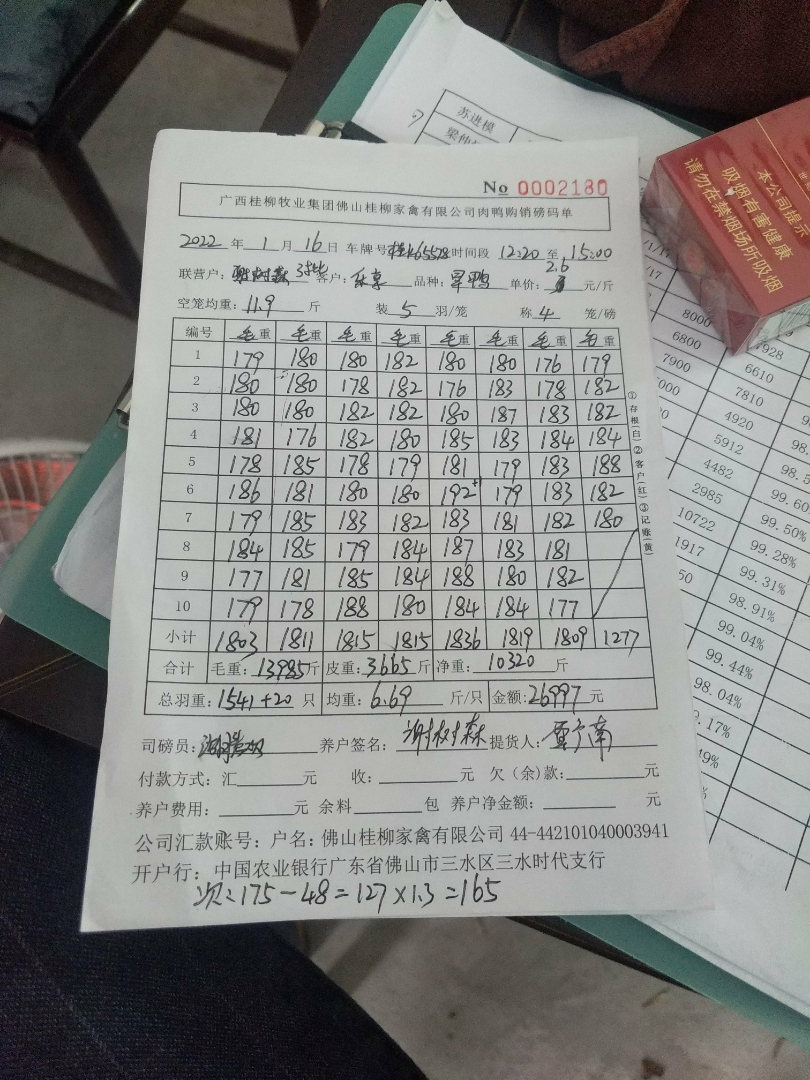 No 0002180
广西桂柳牧业集团佛山桂柳家禽有限公司肉鸭购销磅码单
2022 年 1 月 16 日 车牌号 时间段 12:20 至 15:00
联营户: 客户: 品种: 旱鸭 单价: 2.6 元/斤
空笼均重: 11.9 斤 装 5 羽/笼 称 4 笼/磅
编号 毛重 毛重 毛重 毛重 毛重 毛重 毛重 毛重
1 179 180 180 182 180 180 176 179
2 180 180 178 182 176 183 178 182
3 180 180 182 182 180 187 183 182
4 181 176 182 180 185 183 184 184
5 178 185 178 179 181 179 183 188
6 186 181 180 180 192+1 179 183 182
7 179 185 183 182 183 181 182 180
8 184 185 179 184 187 183 181
9 177 181 185 184 188 180 182
10 179 178 188 180 184 184 177
小计 1803 1811 1815 1815 1836 1819 1809 1277
合计 毛重: 13985斤 皮重: 3665斤 净重: 10320 斤
总羽重: 1541+20 只 均重: 6.69 斤/只 金额: 26997 元
司磅员: 养户签名: 谢树森 提货人:
付款方式: 汇 元 收: 元 欠(余)款: 元
养户费用: 元 余料 包 养户净金额: 元
公司汇款账号: 户名: 佛山桂柳家禽有限公司 44-442101040003941
开户行: 中国农业银行广东省佛山市三水区三水时代支行
次: 175-48=127×1.3=165
①存根(白)②客户(红)③记账(黄)
苏进模
本公司提示
吸烟有害健康
请勿在禁烟场所吸烟
8000
7928
6800
6610
7900
7810
4920
5912
4482
2985
99.50%
10722
99.28%
1917
99.31%
98.91%
99.04%
99.44%
98.04%